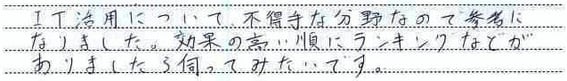 IT活用について不得手な分野なので参考に
なりました。効果の高い順にランキングなどが
ありましたら伺ってみたいです。